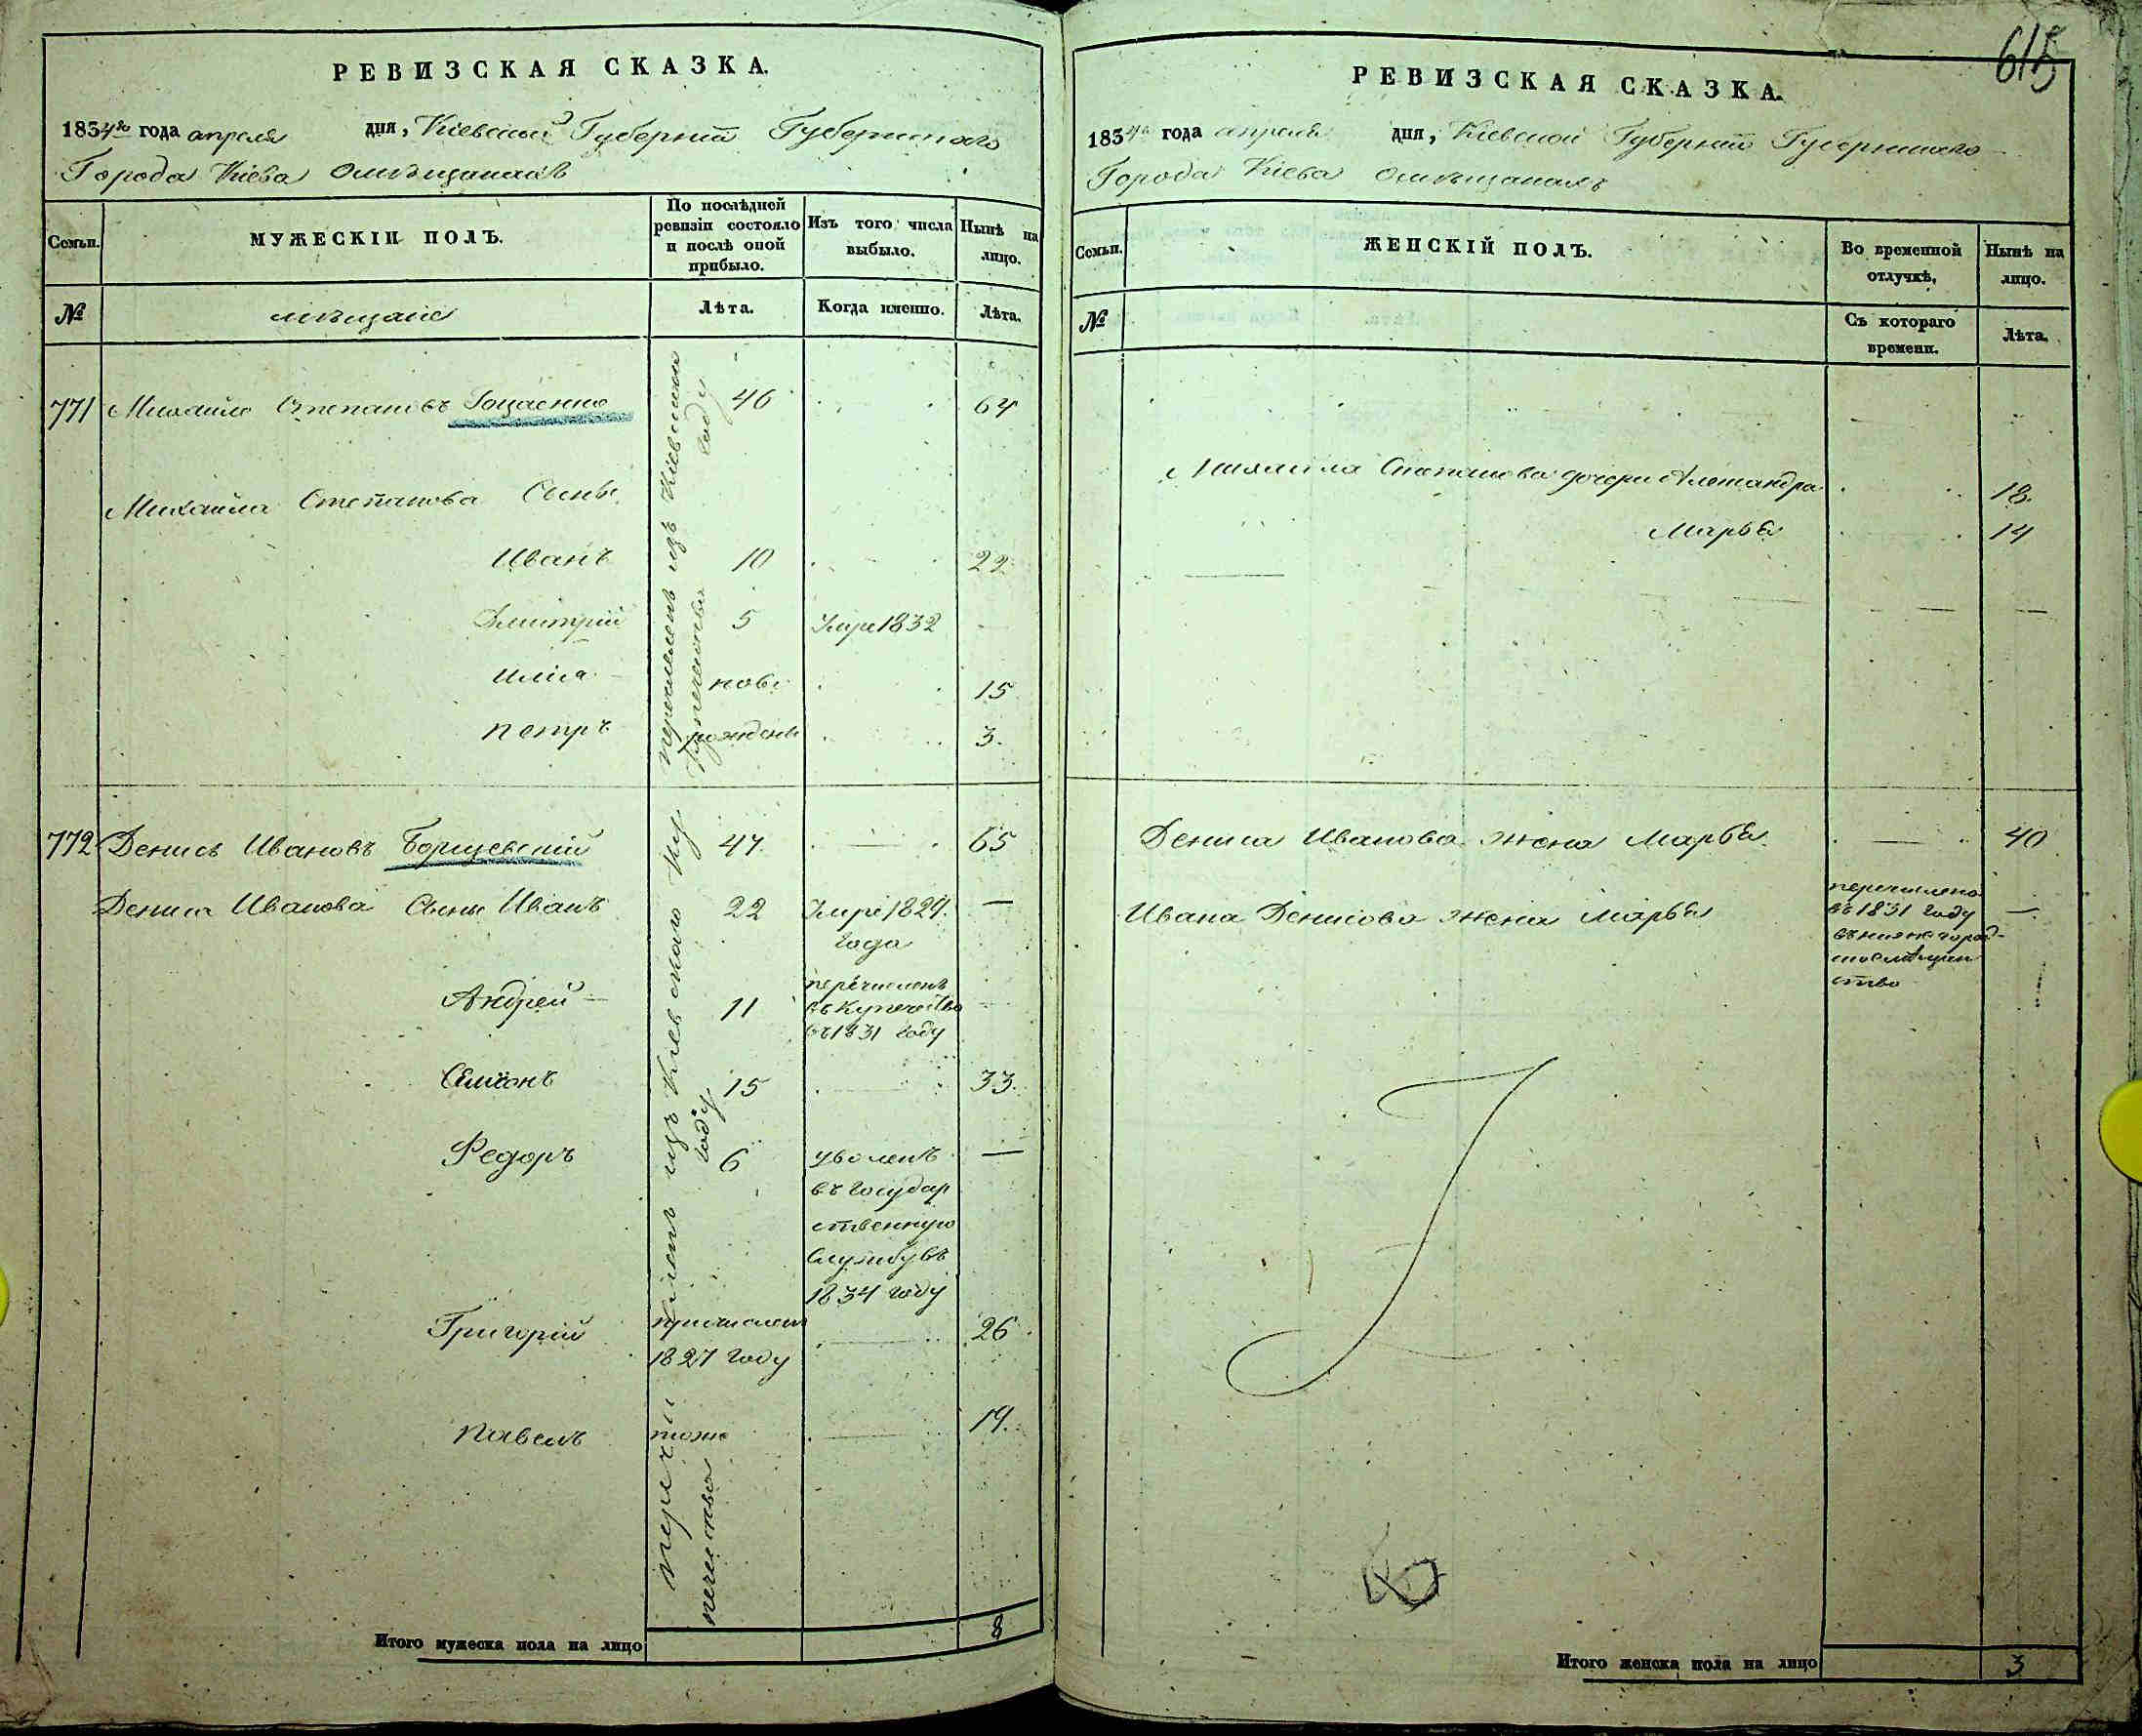 РЕВИЗСКАЯ СКАЗКА.
1834го года апреля дня, Кіевской Губерніи Губернскаго
Города Кіева омѣщанахъ
Семьи.
МУЖЕСКІЙ ПОЛЪ.
По послѣдней
ревизіи состояло
и послѣ оной
прибыло.
Изъ того числа
выбыло.
Нынѣ на
лицо.
№
мѣщане
Лѣта.
Когда именно.
Лѣта.
771 Михайло Степановъ 46 64
Михайла Степанова Сыны
Иванъ 10 22
Дмитрій 5 Умре 1832
Илія ново 15
Петръ рожденъ 3.
перечисленъ изъ Кіевскаго
купечества году
772 Денисъ Ивановъ Борщевскій 47 65
Дениса Иванова Сыны Иванъ 22 Умре 1829. —
года
Андрей 11 перечисленъ
въ купечество
въ 1831 году
Семіонъ 15 33.
Федоръ 6 уволенъ —
въ государ
ственную
службу въ
1834 году
Григорій причисленъ 26
1827 году
Павелъ тоже 19.
перечисленъ изъ Кіевскаго ку
печества году
Итого мужеска пола на лицо 8
615
РЕВИЗСКАЯ СКАЗКА.
1834го года апреля дня, Кіевской Губерніи Губернскаго
Города Кіева омѣщанахъ
Семьи.
ЖЕНСКІЙ ПОЛЪ.
Во временной
отлучкѣ,
Нынѣ на
лицо.
№
Съ котораго
времени.
Лѣта.
Михайла Степанова дочери Александра 18.
Марья 14
Дениса Иванова жена Марья 40
Ивана Денисова жена Марья перечислена —
въ 1831 году
Итого женска пола на лицо 3